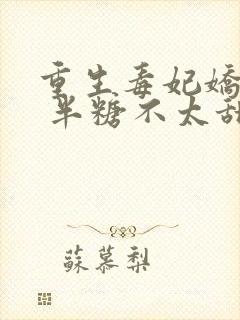 重生毒妃嬌
半糖不太甜
蘇慕梨